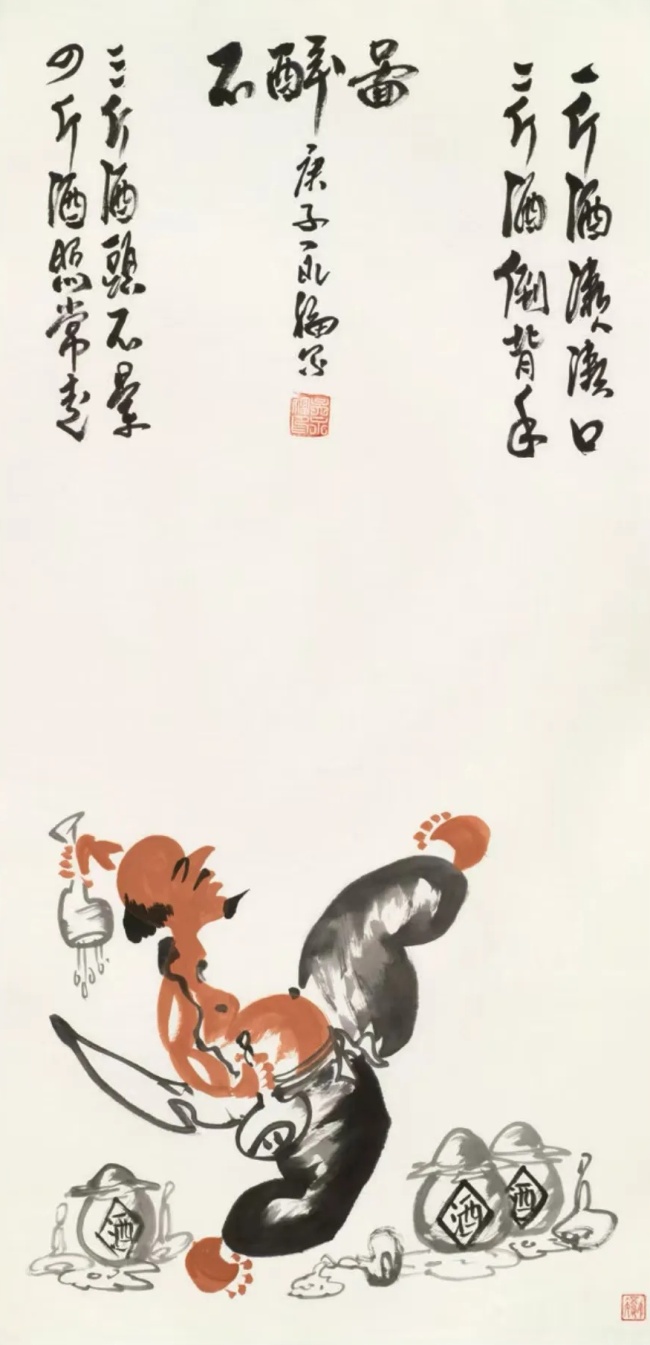 一斤酒漱漱口
二斤酒倒背手
不醉啚
庚子
三斤酒頭不暈
四斤酒照常走
酒
酒
酒